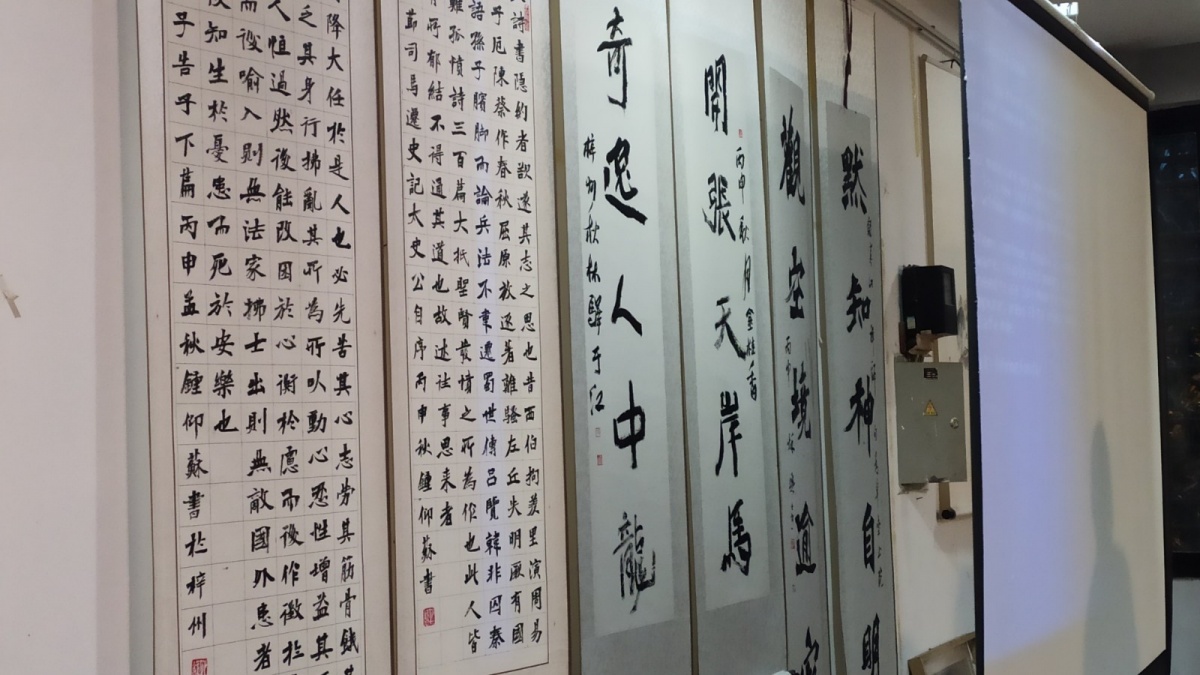 默知神自明
觀空境逾
開張天岸馬
丙申秋月金桂香
奇逸人中龍
梓州秋林驛于江
詩書隐約者欲遂其志之思也昔西伯拘羑里演周易
子厄陳蔡作春秋屈原放逐著離騷左丘失明厥有國
語孫子臏脚而論兵法不韋遷蜀世傳吕覽韓非囚秦
難孤憤詩三百篇大抵聖賢發憤之所為作也此人皆
有所郁結不得通其道也故述往事思来者
節司馬遷史記太史公自序丙申秋鍾仰蘇書
降大任於是人也必先苦其心志勞其筋骨餓其
乏其身行拂亂其所為所以動心忍性增益其
人恒過然後能改困於心衡於慮而後作徵於
而後喻入則無法家拂士出則無敵國外患者
後知生於憂患而死於安樂也
子告子下篇丙申孟秋鍾仰蘇書於梓州